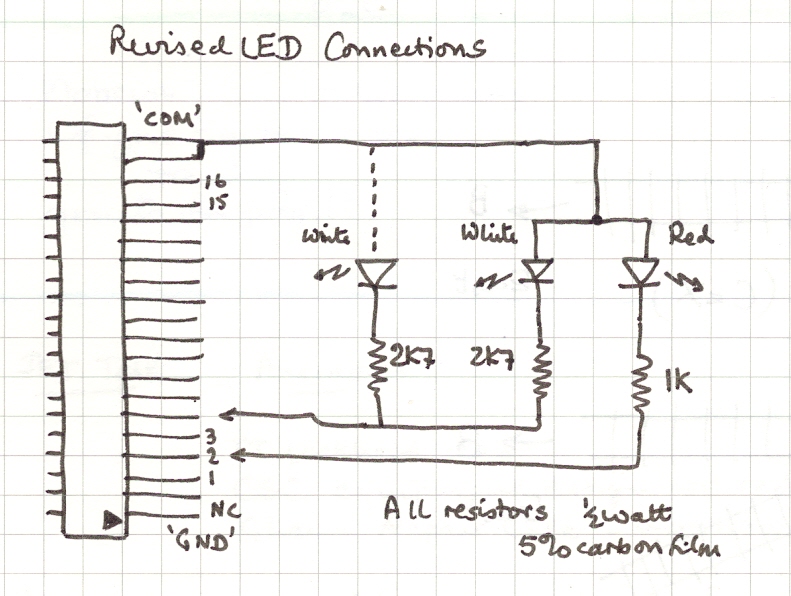 Revised LED Connections
'COM'
16
15
White
White
Red
2K7
2K7
1K
3
2
1
NC
'GND'
All resistors ½ watt
5% carbon film